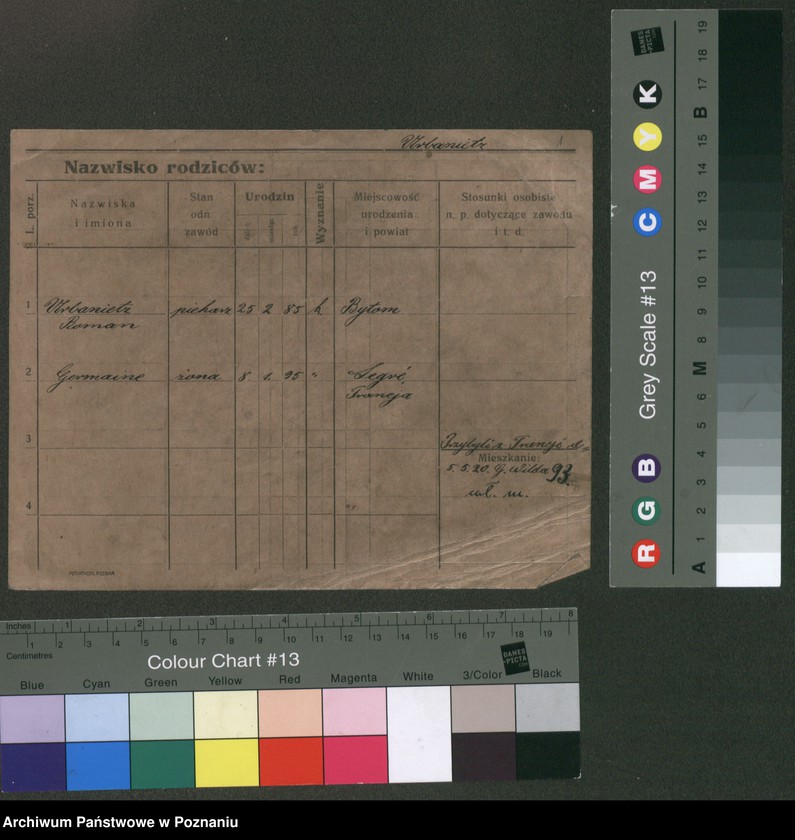 Urbanietz
Nazwisko rodziców:
L. porz.
Nazwiska i imiona
Stan odn. zawód
Urodzin
Wyznanie
Miejscowość urodzenia i powiat
Stosunki osobiste n. p. dotyczące zawodu i t. d.
1 Urbanietz piekarz 25 2 85 k. Bytom
Roman
2 Germaine żona 8 1. 95 " Segré,
Francja
3
Przybyli z Francji d.
Mieszkanie:
5. 5. 20. G. Wilda 93.
wł. m.
4
Grey Scale #13
R G B C M Y K
DANES-PICTA.COM
A 1 2 3 4 5 6 M 8 9 10 11 12 13 14 15 B 17 18 19
Inches 1 2 3 4 5 6 7 8
Centimetres 1 2 3 4 5 6 7 8 9 10 11 12 13 14 15 16 17 18 19
Colour Chart #13
DANES-PICTA.COM
Blue Cyan Green Yellow Red Magenta White 3/Color Black
Archiwum Państwowe w Poznaniu